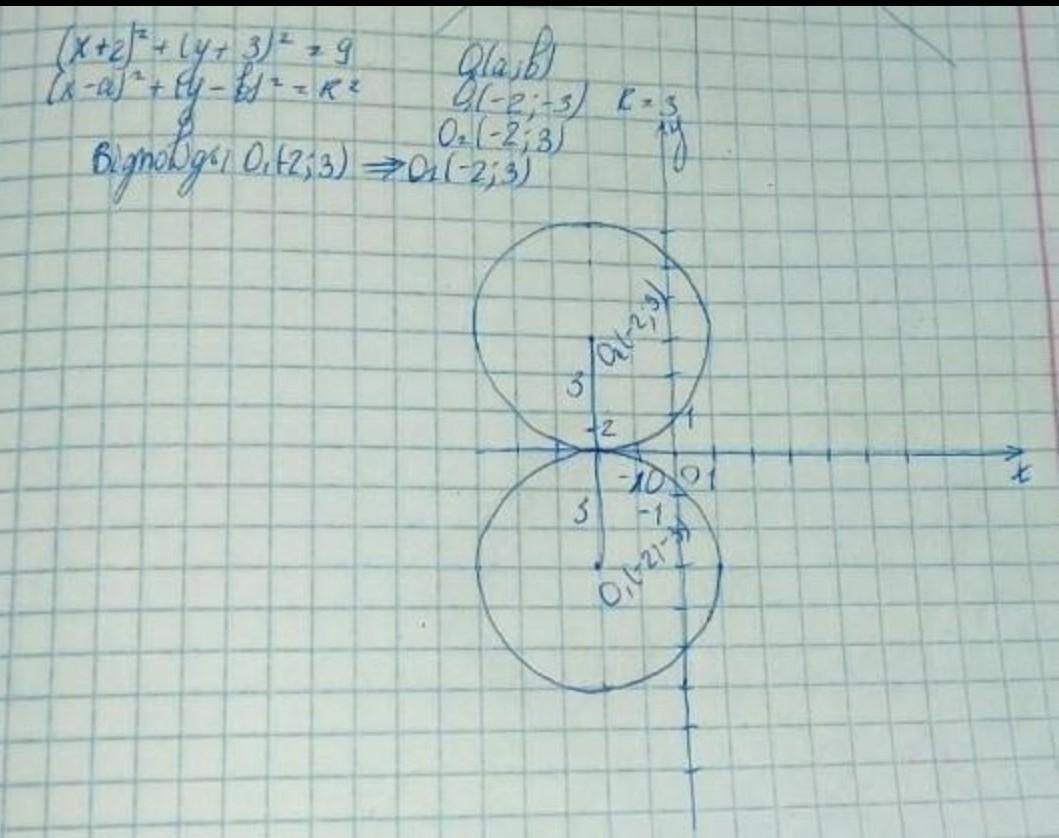 (x+2)² + (y+3)² = 9
O(a;b)
(x-a)² + (y-b)² = R²
O₁(-2;-3) R = 3
O₂(-2;3)
y
Відповідь: O₁(-2;3) ⇒ O₂(-2;3)
O₂(-2;3)
3
2
1
-1 0 0 1
x
3
-1
O₁(-2;-3)